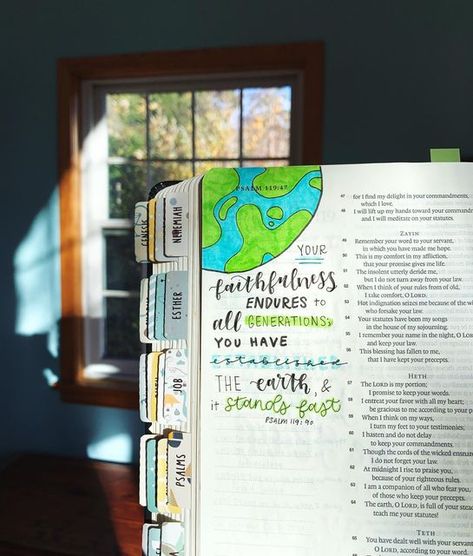 GENESIS
NEHEMIAH
ESTHER
JOB
PSALMS
PSALM 119:47
YOUR
faithfulness
ENDURES to
all GENERATIONS;
YOU HAVE
established
THE earth, &
it stands fast
PSALM 119:90
47 for I find my delight in your commandments,
which I love.
48 I will lift up my hands toward your commandments
and I will meditate on your statutes.
ZAYIN
49 Remember your word to your servant,
in which you have made me hope.
50 This is my comfort in my affliction,
that your promise gives me life.
51 The insolent utterly deride me,
but I do not turn away from your law.
52 When I think of your rules from of old,
I take comfort, O LORD.
53 Hot indignation seizes me because of the
who forsake your law.
54 Your statutes have been my songs
in the house of my sojourning.
55 I remember your name in the night, O LORD
and keep your law.
56 This blessing has fallen to me,
that I have kept your precepts.
HETH
57 The LORD is my portion;
I promise to keep your words.
58 I entreat your favor with all my heart;
be gracious to me according to your
59 When I think on my ways,
I turn my feet to your testimonies;
60 I hasten and do not delay
to keep your commandments.
61 Though the cords of the wicked ensnare
I do not forget your law.
62 At midnight I rise to praise you,
because of your righteous rules.
63 I am a companion of all who fear you,
of those who keep your precepts.
64 The earth, O LORD, is full of your stead
teach me your statutes!
TETH
65 You have dealt well with your servant
O LORD, according to your word.